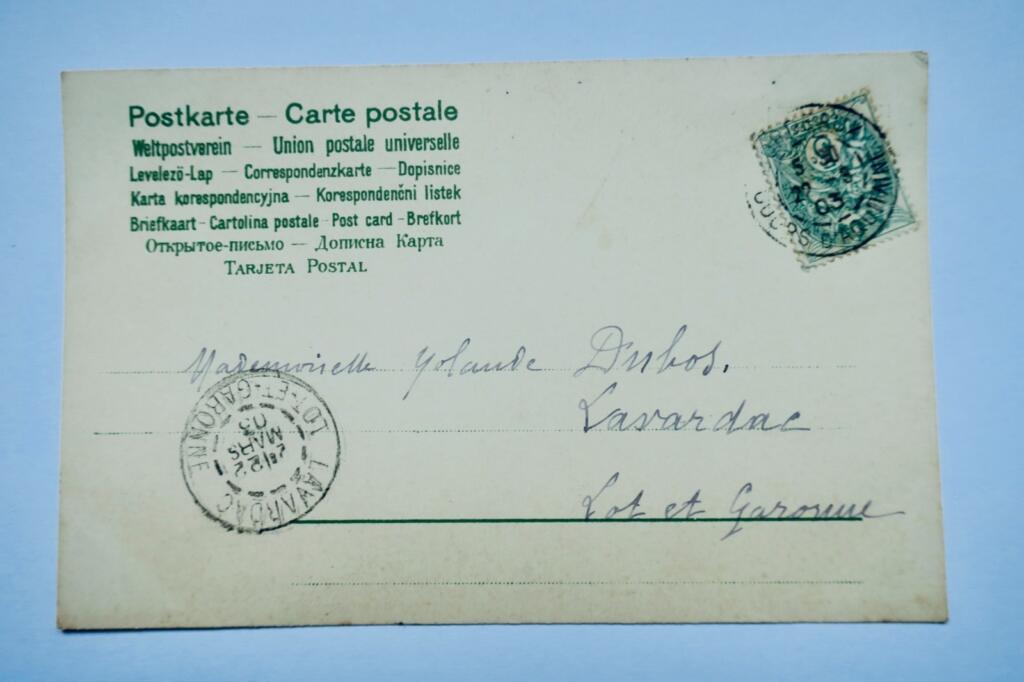 Postkarte — Carte postale
Weltpostverein — Union postale universelle
Levelező-Lap — Correspondenzkarte — Dopisnice
Karta korespondencyjna — Korespondenční listek
Briefkaart - Cartolina postale - Post card - Brefkort
Открытое-письмо — Дописна Карта
Tarjeta Postal
03
Mademoiselle Yolande Dubos.
Lavardac
Lot et Garonne
LAVARDAC
LOT-ET-GARONNE
22
MARS
03